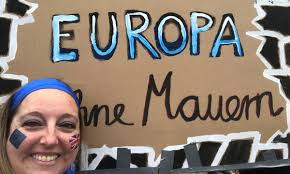 EUROPA
hne Mauern